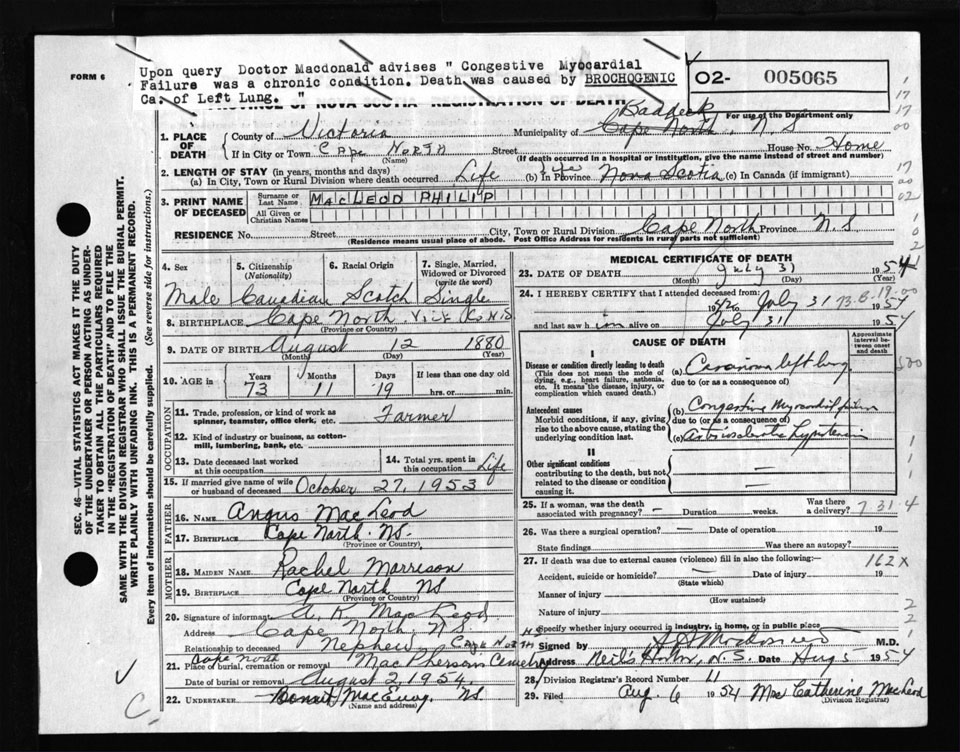 FORM 6
Upon query Doctor Macdonald advises " Congestive Myocardial
Failure was a chronic condition. Death was caused by BROCHOGENIC
Ca. of Left Lung. "
O2- 005065
For use of the Department only
PROVINCE OF NOVA SCOTIA REGISTRATION OF DEATH
Baddeck
1. PLACE OF DEATH { County of Victoria Municipality of Cape North, N.S
If in City or Town CAPE NORTH Street House No. Home
(Name) (If death occurred in a hospital or institution, give the name instead of street and number)
2. LENGTH OF STAY (in years, months and days)
(a) In City, Town or Rural Division where death occurred Life (b) in Province Life Nova Scotia (c) In Canada (if immigrant)
3. PRINT NAME OF DECEASED { Surname or Last Name MACLEOD PHILIP
All Given or Christian Names
RESIDENCE No. Street City, Town or Rural Division Cape North Province N.S
(Residence means usual place of abode. Post Office Address for residents in rural parts not sufficient)
4. Sex Male
5. Citizenship (Nationality) Canadian
6. Racial Origin Scotch
7. Single, Married, Widowed or Divorced (write the word) Single
8. BIRTHPLACE Cape North Vict Co N.S
(Province or Country)
9. DATE OF BIRTH August 12 1880
(Month) (Day) (Year)
10. AGE in { Years 73 Months 11 Days 19 If less than one day old hrs. or min.
OCCUPATION
11. Trade, profession, or kind of work as spinner, teamster, office clerk, etc. Farmer
12. Kind of industry or business, as cotton-mill, lumbering, bank, etc.
13. Date deceased last worked at this occupation
14. Total yrs. spent in this occupation Life
15. If married give name of wife or husband of deceased October 27, 1953
FATHER
16. NAME Angus MacLeod
17. BIRTHPLACE Cape North. NS.
(Province or Country)
MOTHER
18. MAIDEN NAME Rachel Morrison
19. BIRTHPLACE Cape North NS
(Province or Country)
20. Signature of informant A. R. MacLeod
Address Cape North, N.S
Relationship to deceased Nephew
21. Place of burial, cremation or removal Cape North MacPherson Cemetery
CAPE NORTH
Date of burial or removal August 2, 1954.
22. UNDERTAKER MacEvoy, NS
(Name and address)
MEDICAL CERTIFICATE OF DEATH
23. DATE OF DEATH July 31 1954
(Month) (Day) (Year)
24. I HEREBY CERTIFY that I attended deceased from:
5/20 July 31 1954
and last saw him alive on July 31 1954
CAUSE OF DEATH
Approximate interval between onset and death
I
Disease or condition directly leading to death
(This does not mean the mode of dying, e.g., heart failure, asthenia, etc. It means the disease, injury, or complication which caused death.)
(a) Carcinoma left lung
due to (or as a consequence)
Antecedent causes
Morbid conditions, if any, giving rise to the above cause, stating the underlying condition last.
(b) Congestive Myocardial failure
due to (or as a consequence)
(c) arteriosclerotic hypertension
II
Other significant conditions
contributing to the death, but not related to the disease or condition causing it.
25. If a woman, was the death associated with pregnancy? Duration weeks. Was there a delivery?
7 31 4
26. Was there a surgical operation? Date of operation 19
State findings Was there an autopsy?
27. If death was due to external causes (violence) fill in also the following:-
162 X
Accident, suicide or homicide? Date of injury 19
(State which)
Manner of injury
(How sustained)
Nature of injury
Specify whether injury occurred in industry, in home, or in public place
Signed by M.D.
Address Neil's Hrbr, N.S. Date Aug 5 1954
28. Division Registrar's Record Number 11
29. Filed Aug. 6 1954 Mrs Catherine MacLeod
(Division Registrar)
SEC. 46—VITAL STATISTICS ACT MAKES IT THE DUTY
OF THE UNDERTAKER OR PERSON ACTING AS UNDER-
TAKER TO OBTAIN ALL THE PARTICULARS REQUIRED
IN THE "REGISTRATION OF DEATH" AND TO FILE THE
SAME WITH THE DIVISION REGISTRAR WHO SHALL ISSUE THE BURIAL PERMIT.
WRITE PLAINLY WITH UNFADING INK. THIS IS A PERMANENT RECORD.
Every item of information should be carefully supplied. (See reverse side for instructions.)
C.